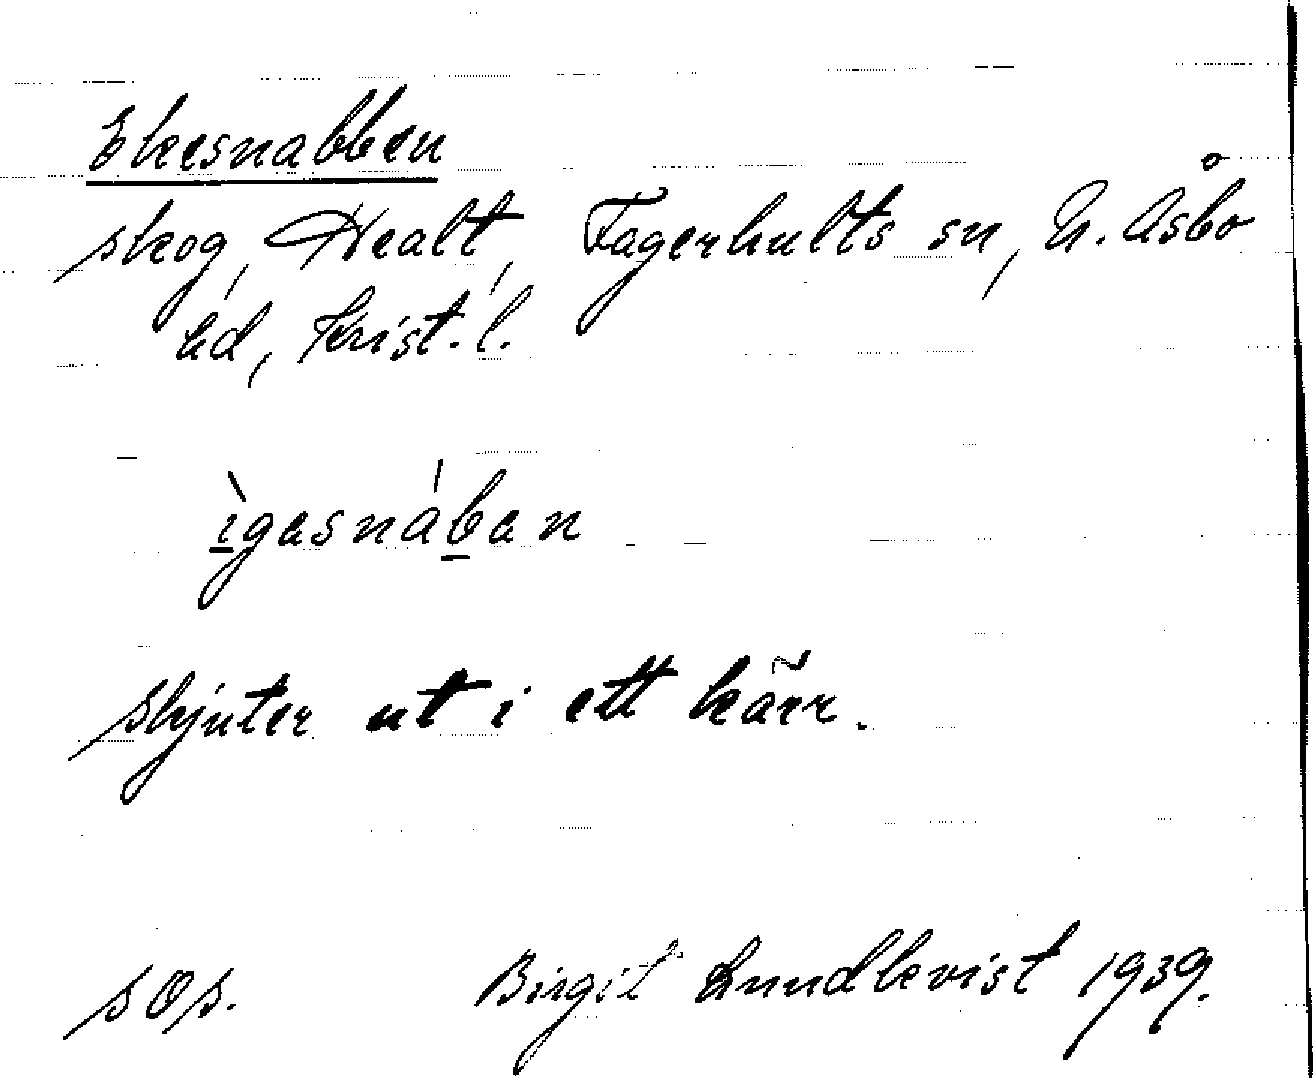 Ekesnabben
skog, Healt, Fagerhults sn, N. Åsbo
hd, Krist. l.
ìgesnáben
skjuter ut i ett kärr.
SOS. Birgit Lundkvist 1939.